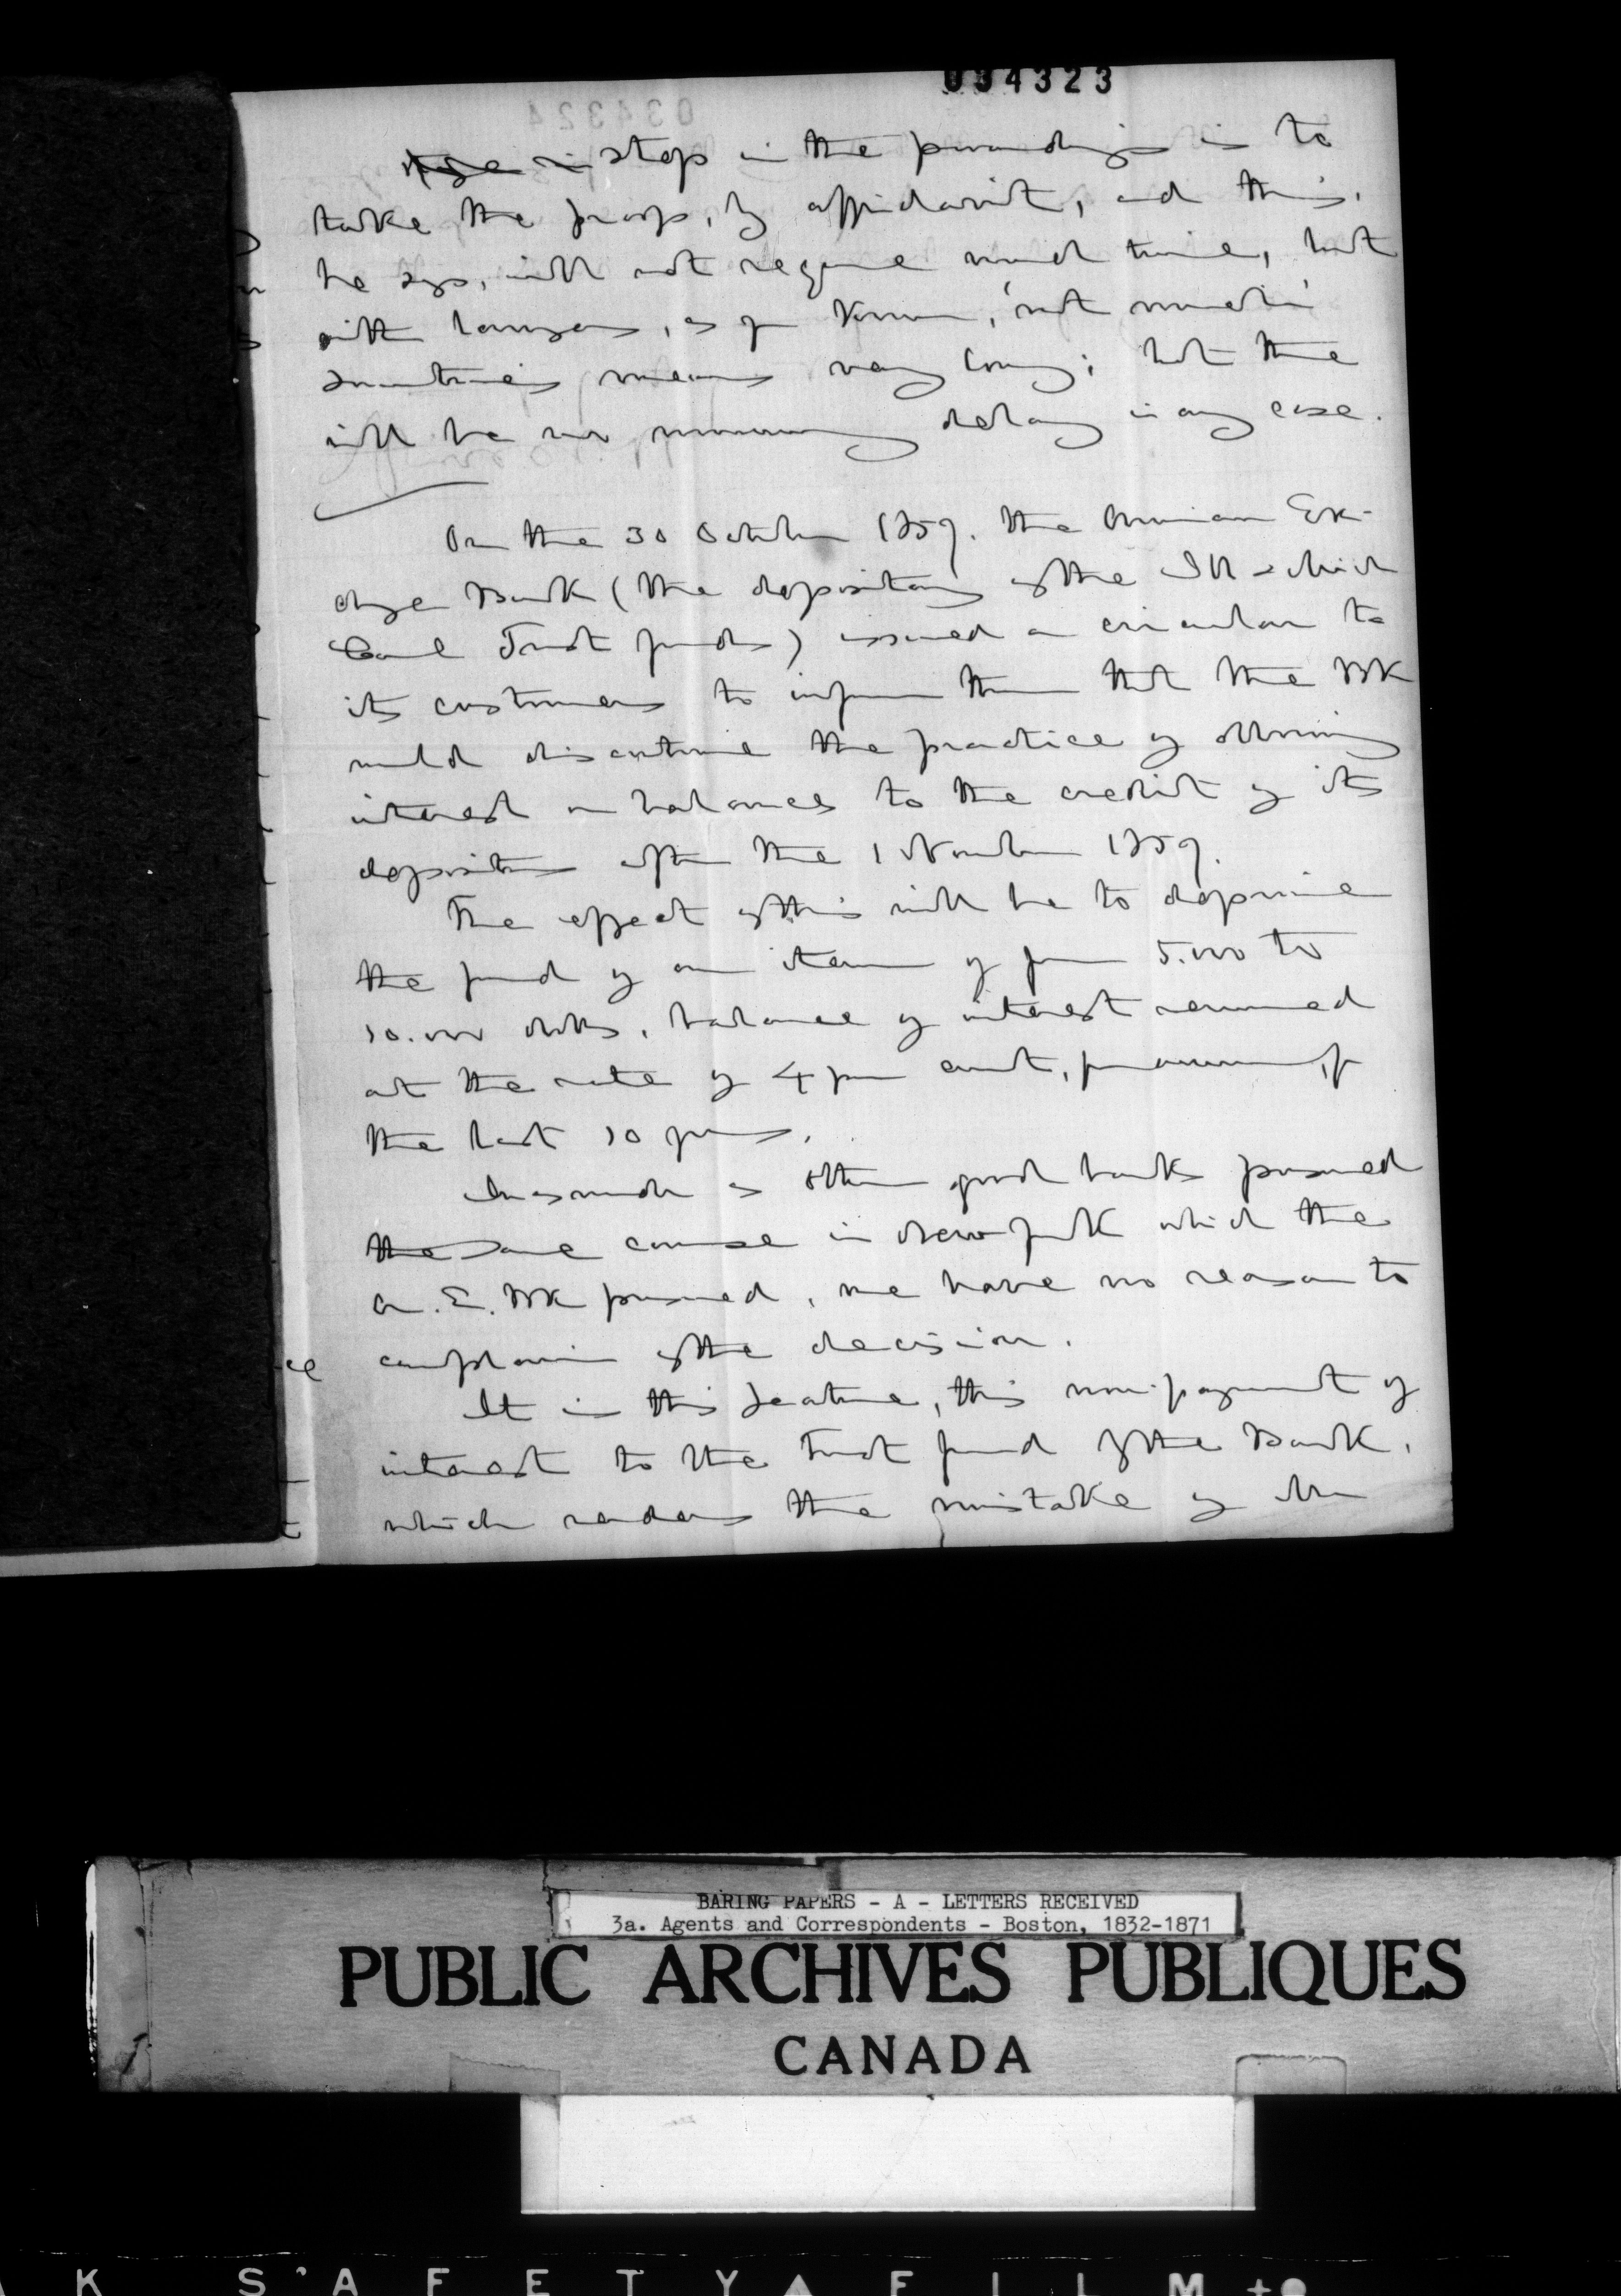 034323
034324
step in the proceedings is to
take the proofs, by affidavit, and this,
he says, will not require much time, but
with lawyers, as you know, 'not much'
sometimes means very long; but there
will be no unnecessary delay in any case.
On the 30 October 1859. the American Ex-
change Bank (the depositary of the Ill & Mich
Canal Trust funds) issued a circular to
its customers to inform them that the Bk
would discontinue the practice of allowing
interest on balances to the credit of its
depositors after the 1 November 1859.
The effect of this will be to deprive
the fund of an item of from 5.000 to
10.000 dolls, balance of interest received
at the rate of 4 per cent, per annum, for
the last 10 years.
Inasmuch as other good banks pursued
the same course in New York which the
A. E. Bk pursued, we have no reason to
complain of the decision.
It is this feature, this non-payment of
interest to the Trust fund of the Bank,
which renders the mistake of Mr
ce
BARING PAPERS - A - LETTERS RECEIVED
3a. Agents and Correspondents - Boston, 1832-1871
PUBLIC ARCHIVES PUBLIQUES
CANADA
K SAFETY FILM